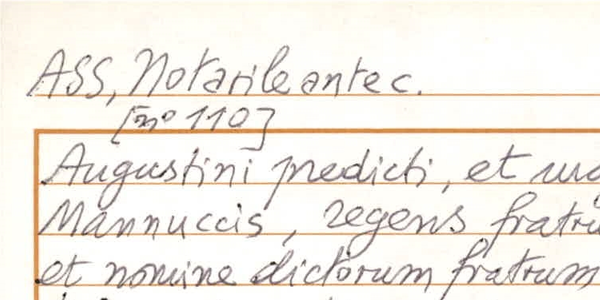 ASS, Notarile antec.
[no 110]
Augustini predicti, et
Mannuccis, regens
et nomine dictorum fratrum